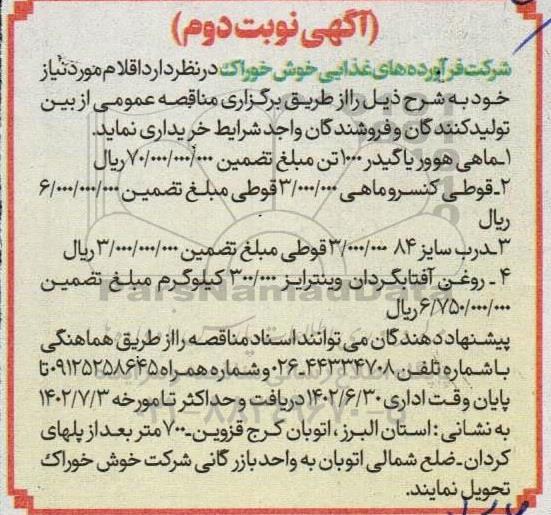 (آگهی نوبت دوم)
شرکت فرآورده های غذایی خوش خوراک در نظر دارد اقلام مورد نیاز
خود به شرح ذیل را از طریق برگزاری مناقصه عمومی از بین
تولیدکنندگان و فروشندگان واجد شرایط خریداری نماید.
۱ـ ماهی هوور یا گیدر ۱۰۰۰ تن مبلغ تضمین ۷۰/۰۰۰/۰۰۰/۰۰۰ ریال
۲ـ قوطی کنسرو ماهی ۳/۰۰۰/۰۰۰ قوطی مبلغ تضمین ۶/۰۰۰/۰۰۰/۰۰۰
ریال
۳ـ درب سایز ۸۴ ۳/۰۰۰/۰۰۰ قوطی مبلغ تضمین ۳/۰۰۰/۰۰۰/۰۰۰ ریال
۴ ـ روغن آفتابگردان وینترایز ۳۰۰/۰۰۰ کیلوگرم مبلغ تضمین
۶/۷۵۰/۰۰۰/۰۰۰ ریال
پیشنهاد دهندگان می توانند اسناد مناقصه را از طریق هماهنگی
با شماره تلفن ۴۴۳۳۴۷۰۸ـ۰۲۶ و شماره همراه ۰۹۱۲۵۲۵۸۶۴۵ تا
پایان وقت اداری ۱۴۰۲/۶/۳۰ دریافت و حداکثر تا مورخه ۱۴۰۲/۷/۳
به نشانی : استان البرز ، اتوبان کرج قزوین ـ ۷۰۰ متر بعد از پلهای
کردان ـ ضلع شمالی اتوبان به واحد بازرگانی شرکت خوش خوراک
تحویل نمایند.
ParsNamadData